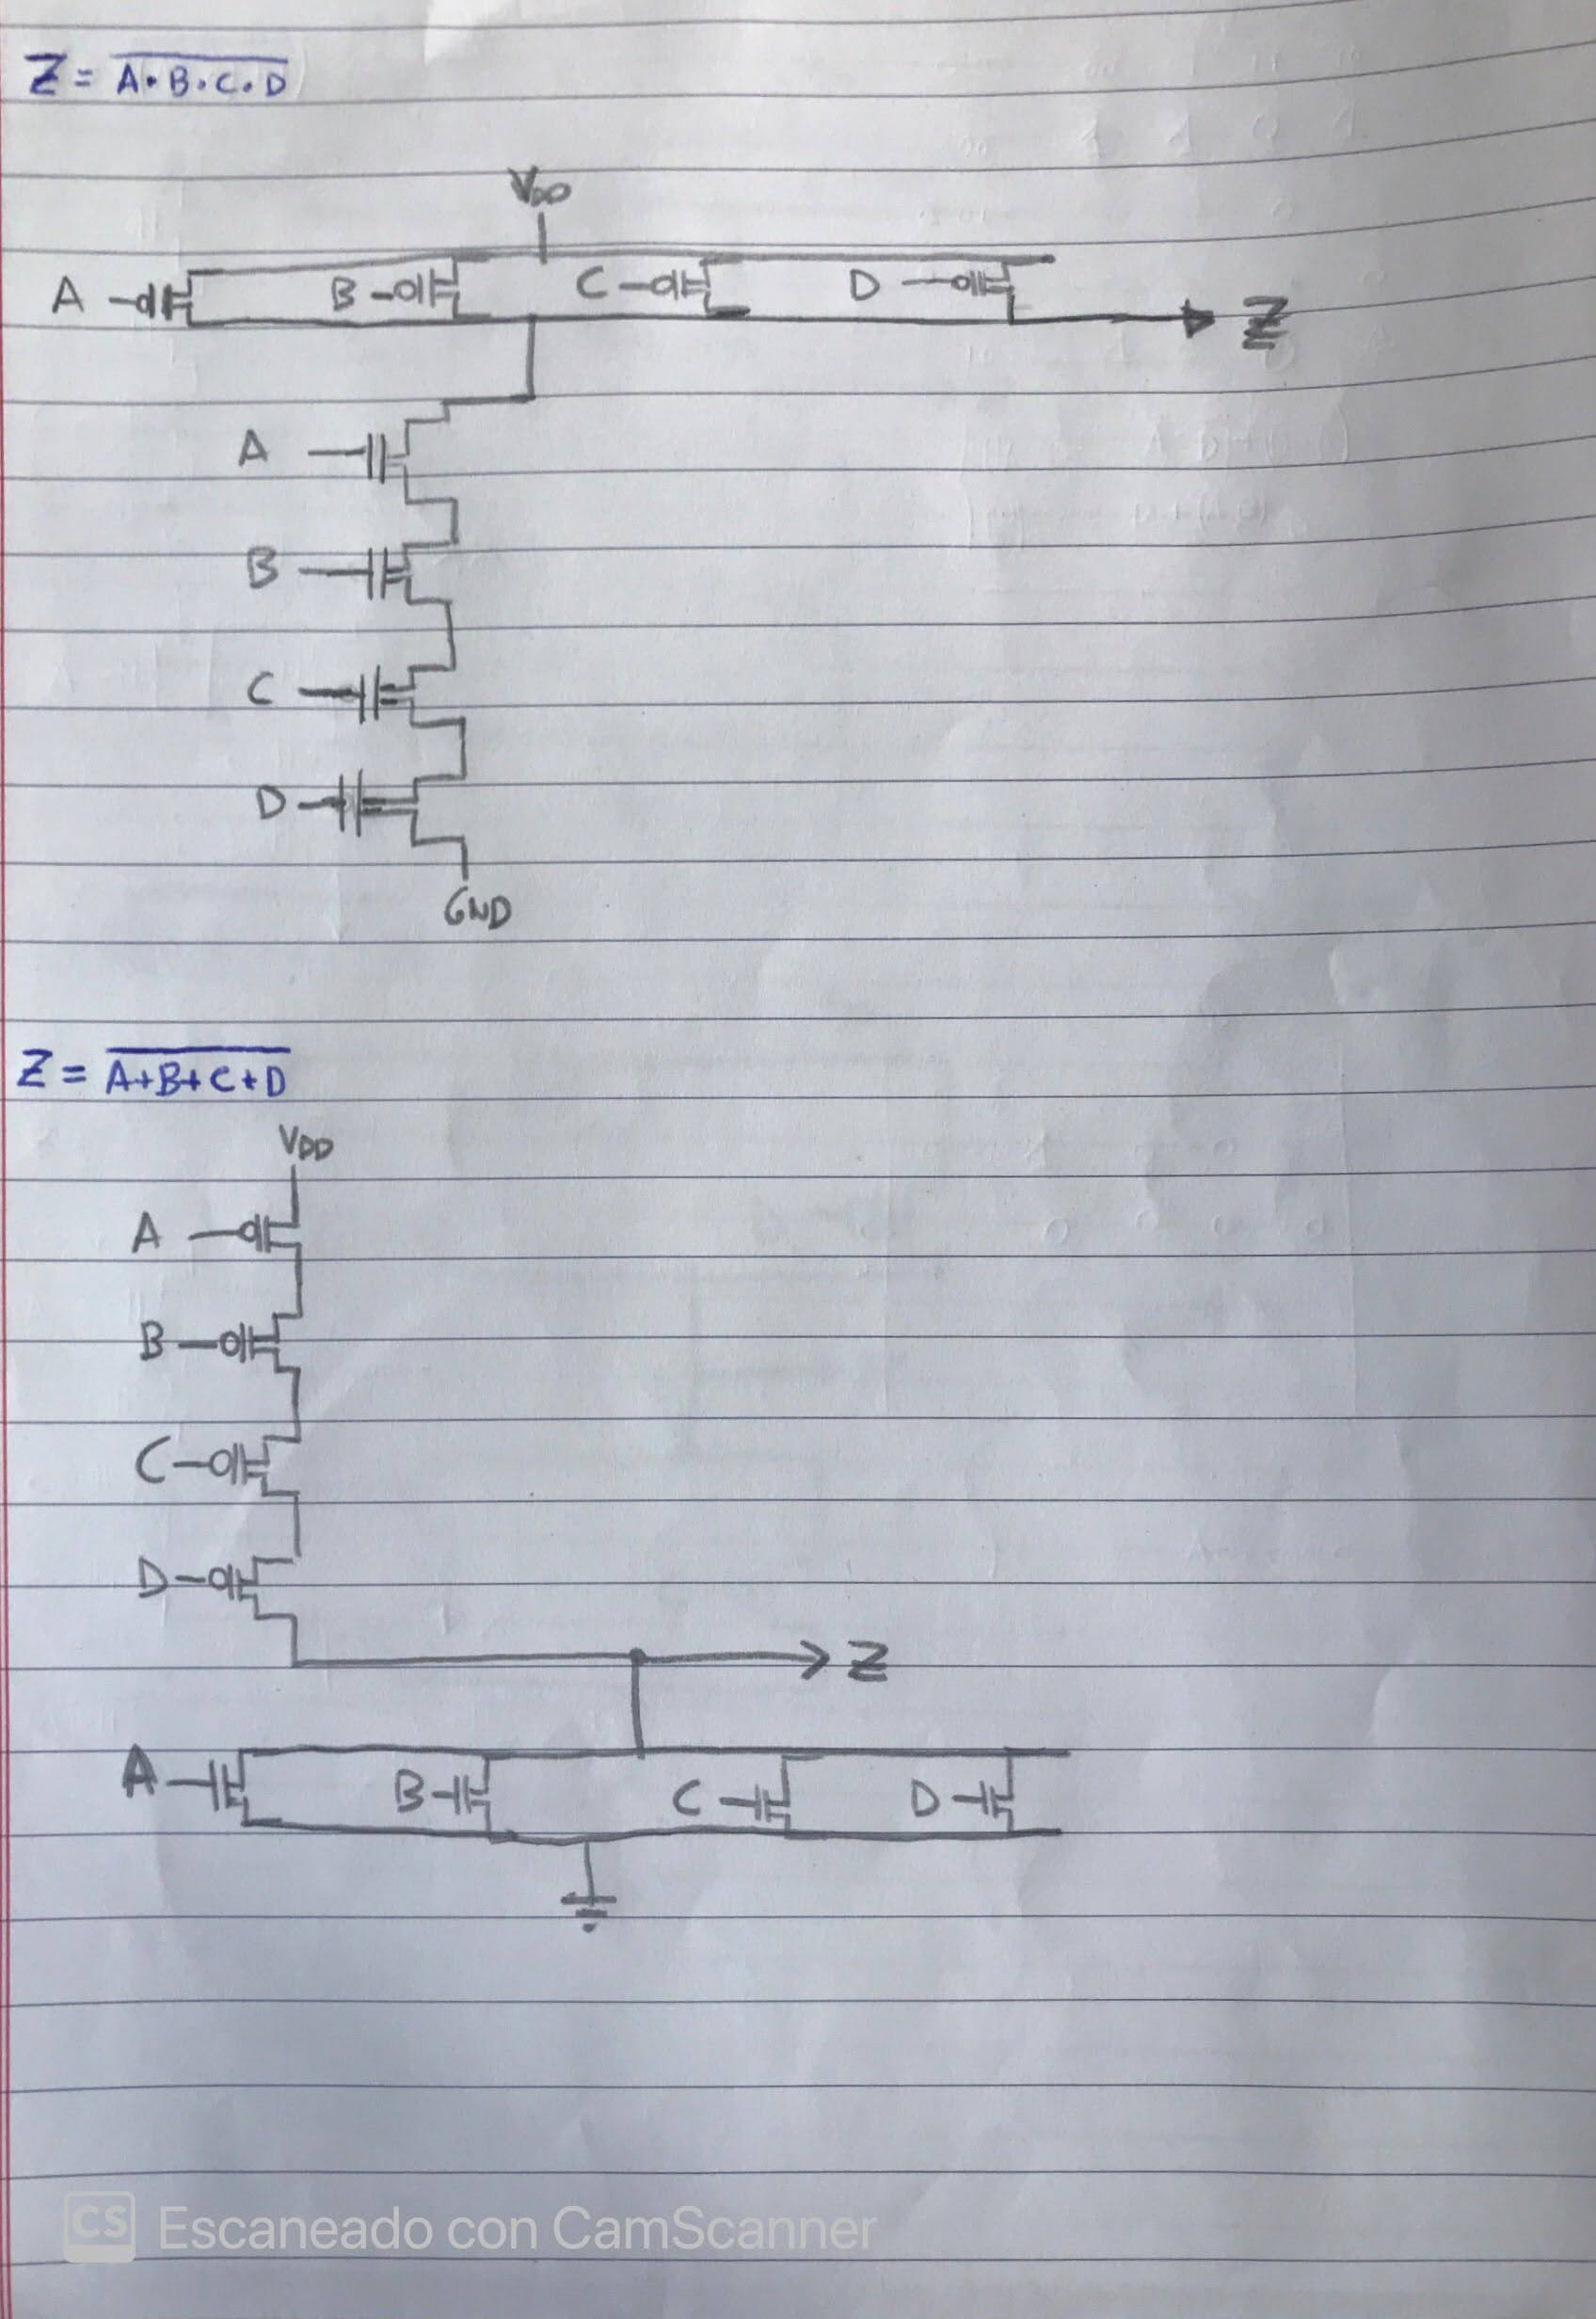 Z = \overline{A·B·C·D}
VDD
A B C D Z
A
B
C
D
GND
Z = \overline{A+B+C+D}
VDD
A
B
C
D
Z
A B C D
CS Escaneado con CamScanner